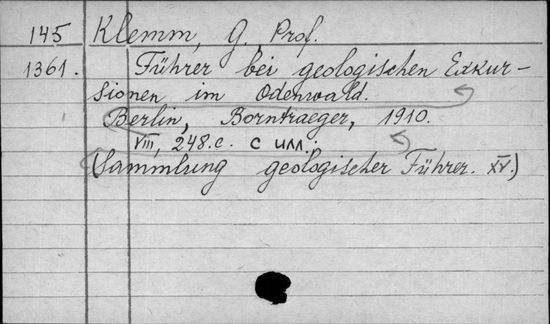 145 Klemm, G. Prof.
1361. Führer bei geologischen Exkur-
sionen im Odenwald.
Berlin, Borntraeger, 1910.
VIII, 248.c. с илл.
(Sammlung geologischer Führer. XV.)